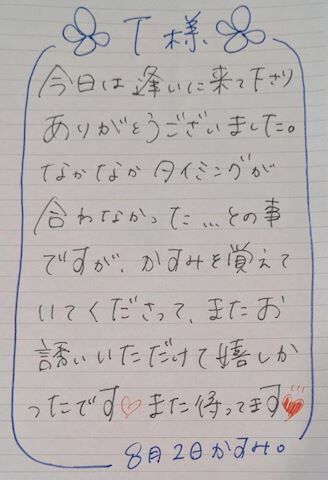 T様
今日は逢いに来て下さり
ありがとうございました。
なかなかタイミングが
合わなかった...との事
ですが、かすみを覚えて
いてくださって、またお
誘いいただけて嬉しか
ったです♡また待ってます♥
8月2日かすみ。